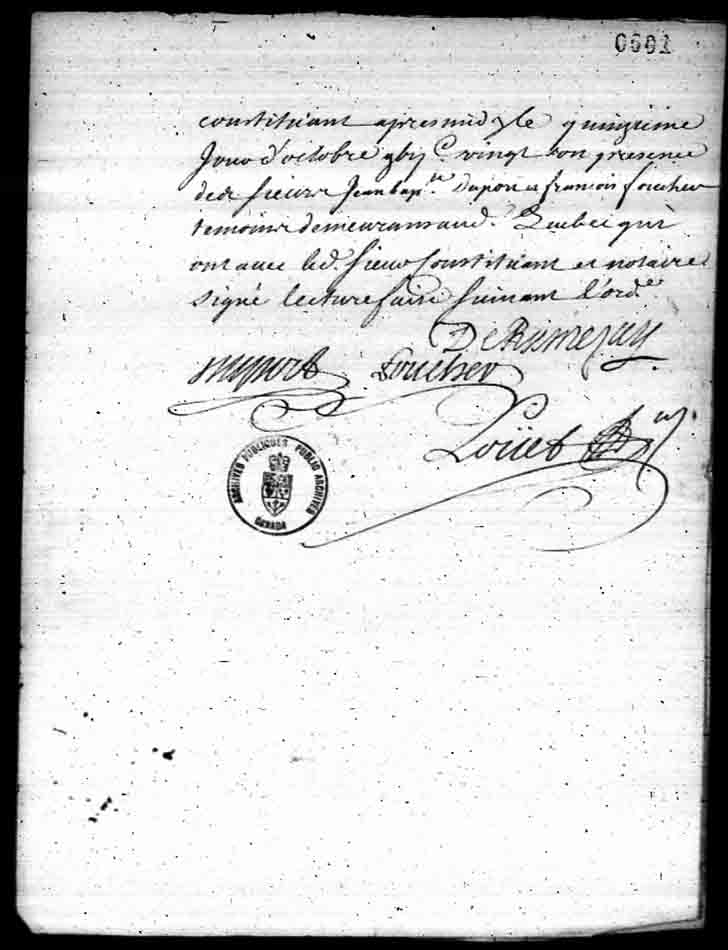 0601
constituant apres midy le quinzieme
Jour d'octobre gbij c vingt en presence
des sieurs Jean bap.te Dupon et francois foucher
temoins demeurans aud. Quebec qui
ont avec led. sieur Constituant et notaire
signé lecture faite suivant l'ord.e
DeRamezay
Dupont foucher
Loüet
ARCHIVES PUBLIQUES PUBLIC ARCHIVES
CANADA